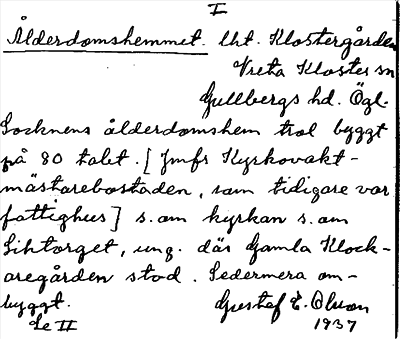 I
Ålderdomshemmet. lht. Klostergården
Vreta Kloster sn
Gullbergs hd. Ögl.
Socknens ålderdomshem trol byggt
på 80 talet. [Jmfr Kyrkovakt-
mästarebostaden, som tidigare var
fattighus] s.om kyrkan s.om
Siktorget, ung. där Gamla Klock-
aregården stod. Sedermera om-
byggt. Gustaf E. Olsson
Se II 1937